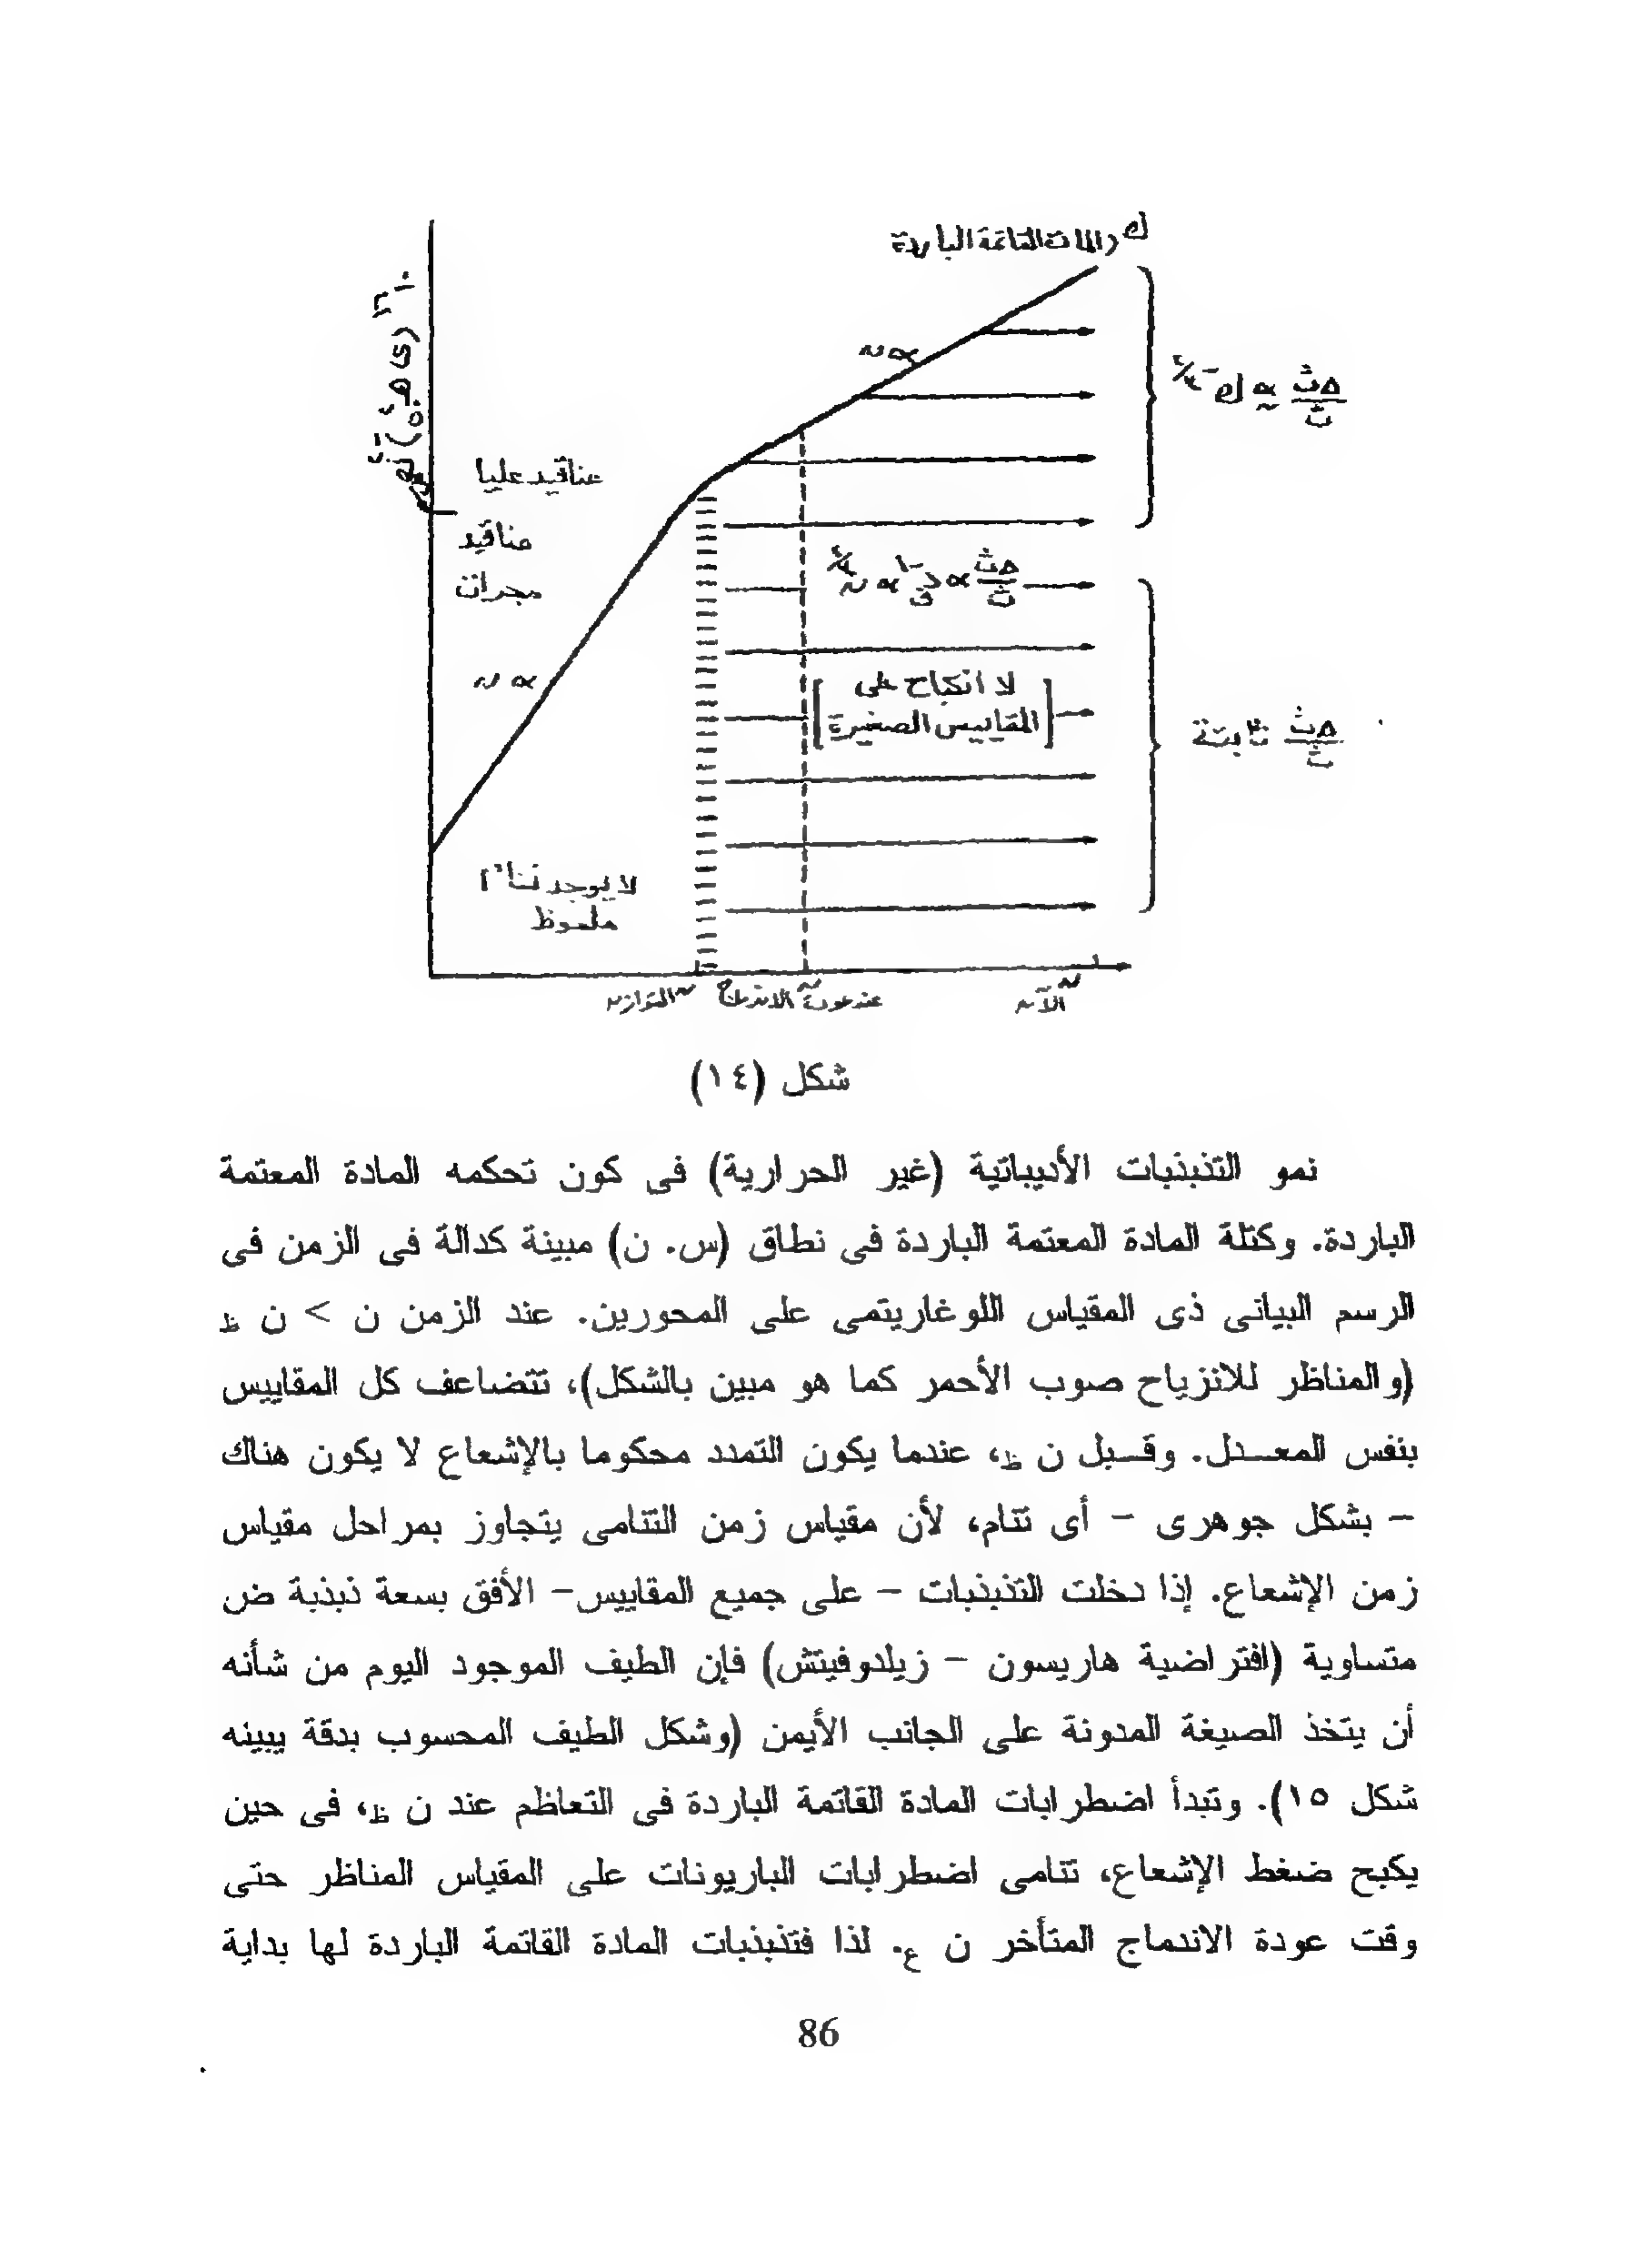 ك (المادة القاتمة الباردة)
عناقيد عليا
عناقيد
مجرات
∝ ن
∝ ن
لا انكباح على
المقاييس الصغيرة
Δث/ث ثابتة
لا يوجد تنام
ملحوظ
ن التوازن
ن عند عودة الاندماج
ن الآن
شكل (١٤)
نمو التذبذبات الأديباتية (غير الحرارية) فى كون تحكمه المادة المعتمة
الباردة. وكتلة المادة المعتمة الباردة فى نطاق (س. ن) مبينة كدالة فى الزمن فى
الرسم البيانى ذى المقياس اللوغاريتمى على المحورين. عند الزمن ن > ن ظ
(والمناظر للانزياح صوب الأحمر كما هو مبين بالشكل)، تتضاعف كل المقاييس
بنفس المعــدل. وقــبل ن ظ، عندما يكون التمدد محكوما بالإشعاع لا يكون هناك
– بشكل جوهرى – أى تنام، لأن مقياس زمن التنامى يتجاوز بمراحل مقياس
زمن الإشعاع. إذا دخلت التذبذبات – على جميع المقاييس– الأفق بسعة ذبذبة ض
متساوية (افتراضية هاريسون – زيلدوفيتش) فإن الطيف الموجود اليوم من شأنه
أن يتخذ الصيغة المدونة على الجانب الأيمن (وشكل الطيف المحسوب بدقة يبينه
شكل ١٥). وتبدأ اضطرابات المادة القاتمة الباردة فى التعاظم عند ن ظ، فى حين
يكبح ضغط الإشعاع، تنامى اضطرابات الباريونات على المقياس المناظر حتى
وقت عودة الاندماج المتأخر ن ع. لذا فتذبذبات المادة القاتمة الباردة لها بداية
86